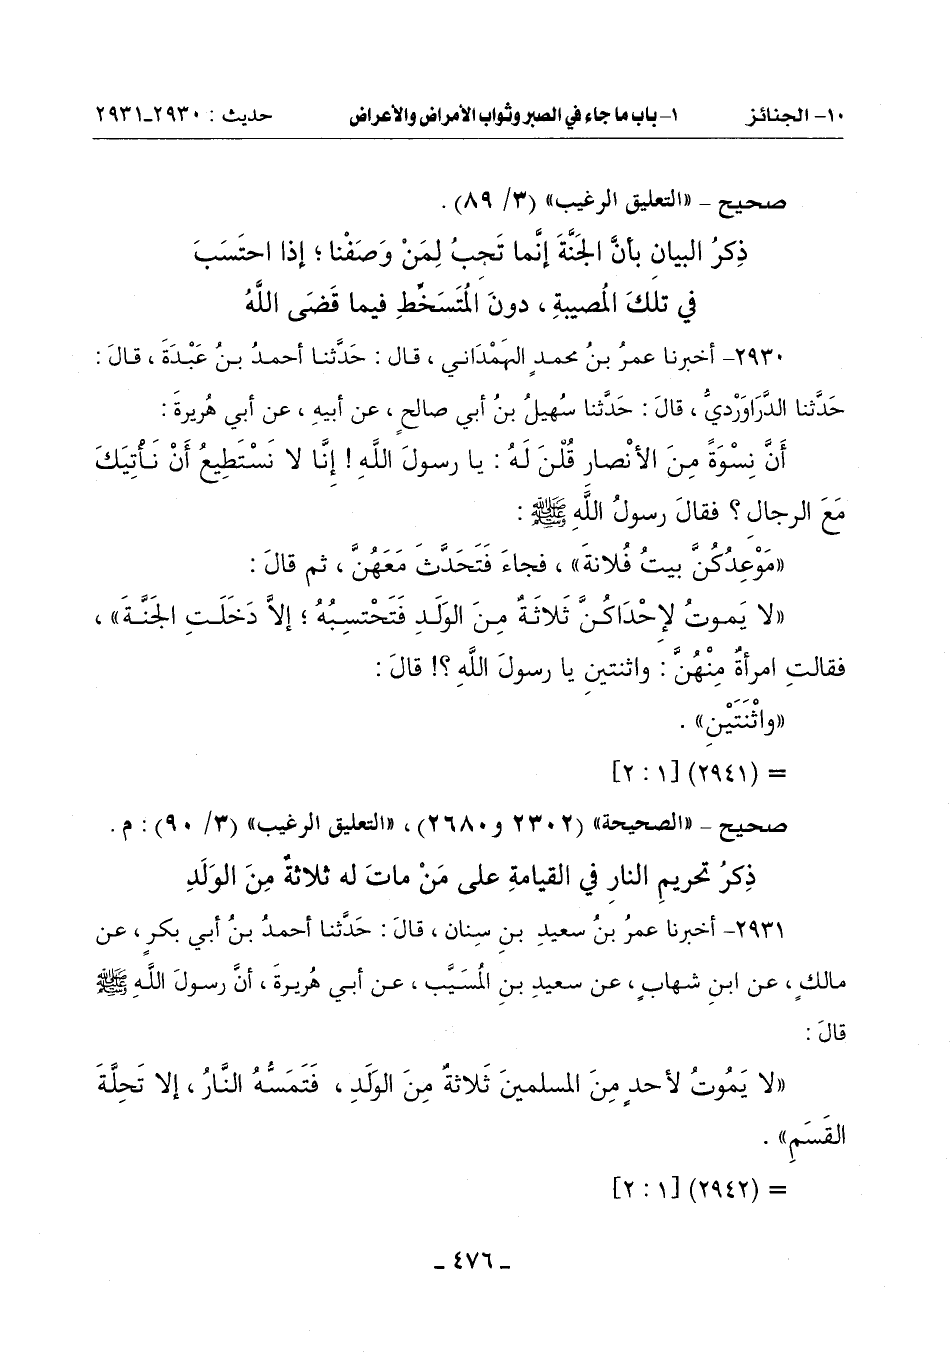 ١٠- الجنائز ١- باب ما جاء في الصبر وثواب الأمراض والأعراض حديث : ٢٩٣٠-٢٩٣١
صحيح - «التعليق الرغيب» (٣/ ٨٩) .
ذِكرُ البيانِ بأنَّ الجَنَّةَ إنَّما تَجبُ لِمَنْ وَصَفْنا ؛ إذا احتَسَبَ
في تلكَ المُصيبةِ ، دونَ المُتَسَخِّطِ فيما قَضَى اللَّهُ
٢٩٣٠- أخبرنا عمرُ بنُ محمدٍ الهَمْدَاني ، قال : حَدَّثنا أحمدُ بنُ عَبْدَةَ ، قالَ :
حَدَّثنا الدَّرَاوَرْديُّ ، قالَ : حَدَّثنا سُهيلُ بنُ أبي صالحٍ ، عن أبيهِ ، عن أبي هُريرةَ :
أَنَّ نِسْوَةً مِنَ الأنْصارِ قُلْنَ لَهُ : يا رسولَ اللَّهِ ! إنَّا لا نَسْتَطِيعُ أَنْ نَأْتِيَكَ
مَعَ الرجالِ ؟ فقالَ رسولُ اللَّهِ ﷺ :
«مَوْعِدُكُنَّ بيتُ فُلانةَ» ، فجاءَ فَتَحَدَّثَ مَعَهُنَّ ، ثم قالَ :
«لا يَموتُ لإحْدَاكُنَّ ثَلاثَةٌ مِنَ الوَلَدِ فَتَحْتسِبُهُ ؛ إلاَّ دَخَلَتِ الجَنَّةَ» ،
فقالتِ امرأةٌ مِنْهُنَّ : واثنتينِ يا رسولَ اللَّهِ ؟! قالَ :
«واثْنَتَيْنِ» .
= (٢٩٤١) [١ : ٢]
صحيح - «الصحيحة» (٢٣٠٢ و٢٦٨٠) ، «التعليق الرغيب» (٣/ ٩٠) : م .
ذِكرُ تحريمِ النارِ في القيامةِ على مَنْ ماتَ له ثلاثةٌ مِنَ الوَلَدِ
٢٩٣١- أخبرنا عمرُ بنُ سعيدِ بنِ سِنان ، قالَ : حَدَّثنا أحمدُ بنُ أبي بكرٍ ، عن
مالكٍ ، عن ابنِ شهابٍ ، عن سعيدِ بنِ المُسَيَّبِ ، عن أبي هُريرةَ ، أنَّ رسولَ اللَّهِ ﷺ
قالَ :
«لا يَمُوتُ لأحدٍ مِنَ المسلمينَ ثَلاثةٌ مِنَ الوَلَدِ ، فَتَمَسُّهُ النَّارُ ، إلا تَحِلَّةَ
القَسَمِ» .
= (٢٩٤٢) [١ : ٢]
- ٤٧٦ -